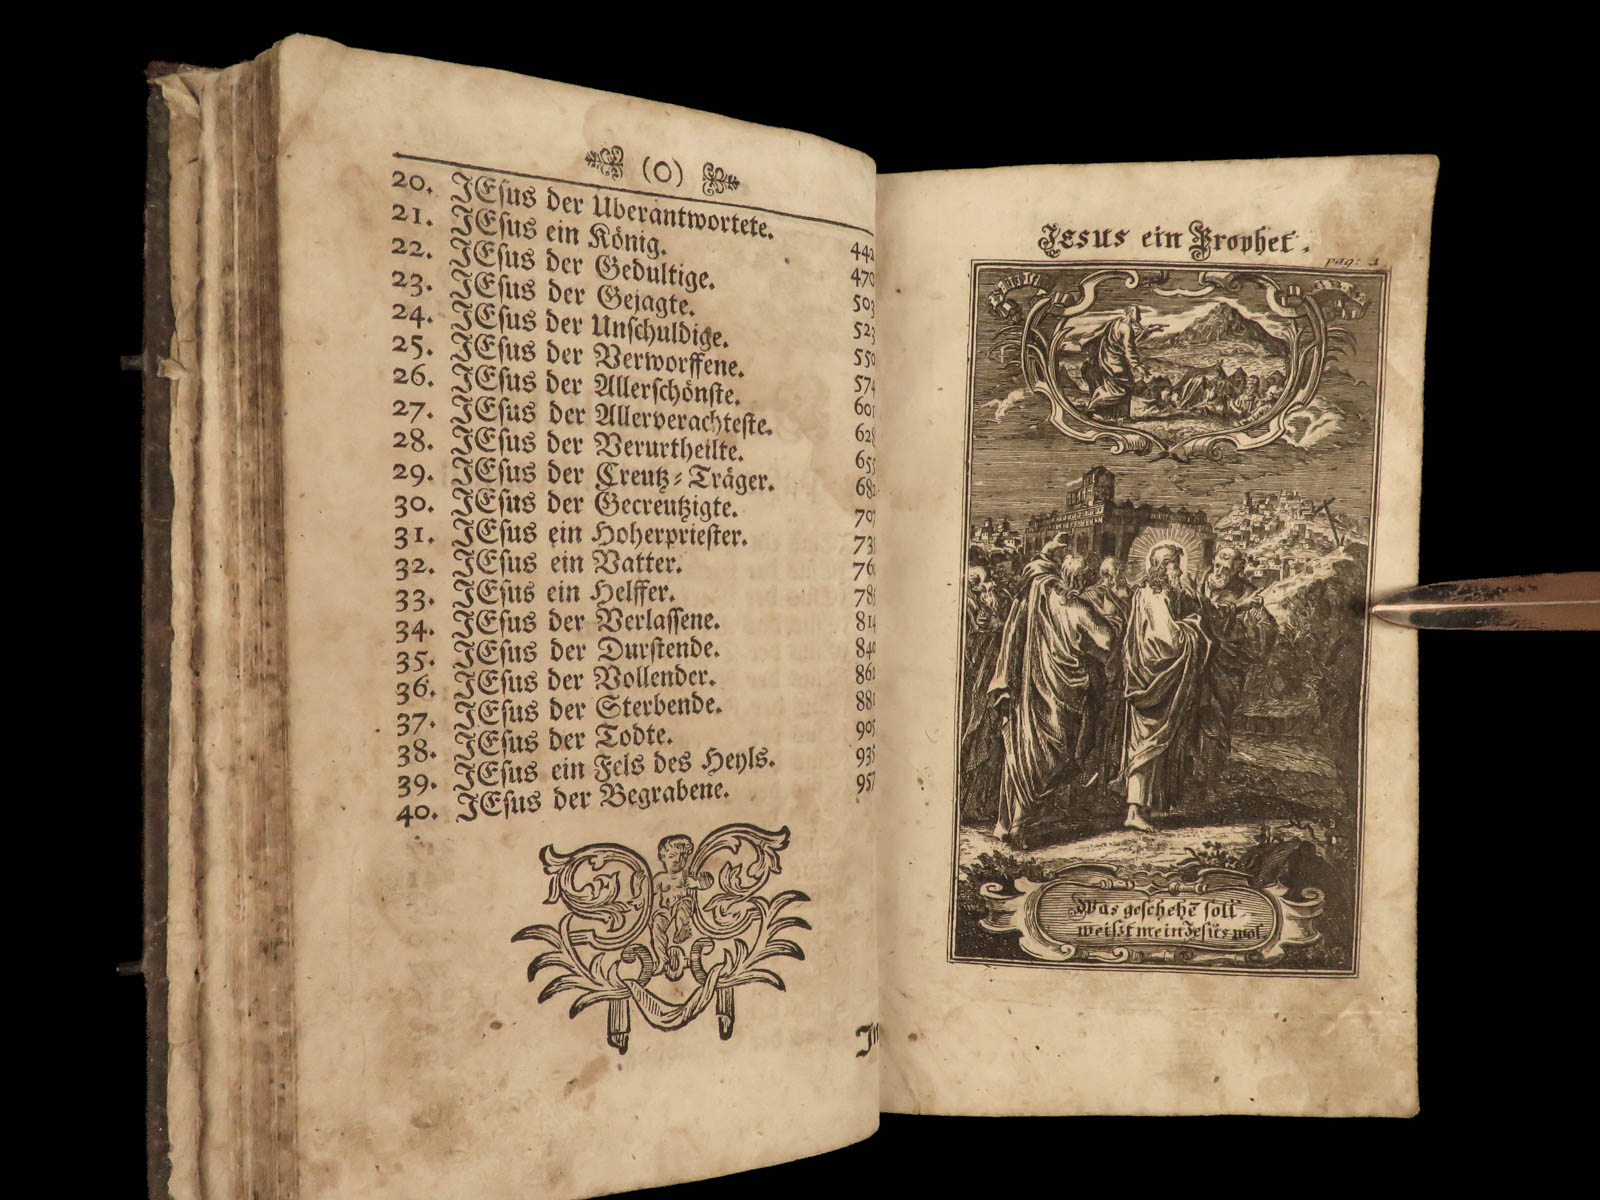 (O)
20. JEsus der Uberantwortete. 442
21. JEsus ein König. 470
22. JEsus der Gedultige. 503
23. JEsus der Gejagte. 523
24. JEsus der Unschuldige. 550
25. JEsus der Verworffene. 574
26. JEsus der Allerschönste. 601
27. JEsus der Allerverachteste. 628
28. JEsus der Verurtheilte. 655
29. JEsus der Creutz-Träger. 682
30. JEsus der Gecreutzigte. 707
31. JEsus ein Hoherpriester. 73
32. JEsus ein Vatter. 76
33. JEsus ein Helffer. 78
34. JEsus der Verlassene. 814
35. JEsus der Durstende. 840
36. JEsus der Vollender. 86
37. JEsus der Sterbende. 881
38. JEsus der Todte. 905
39. JEsus ein Fels des Heyls. 935
40. JEsus der Begrabene. 957
Jesus ein Prophet.
pag: 1.
Was geschehē soll
weißt mein Jesus wol